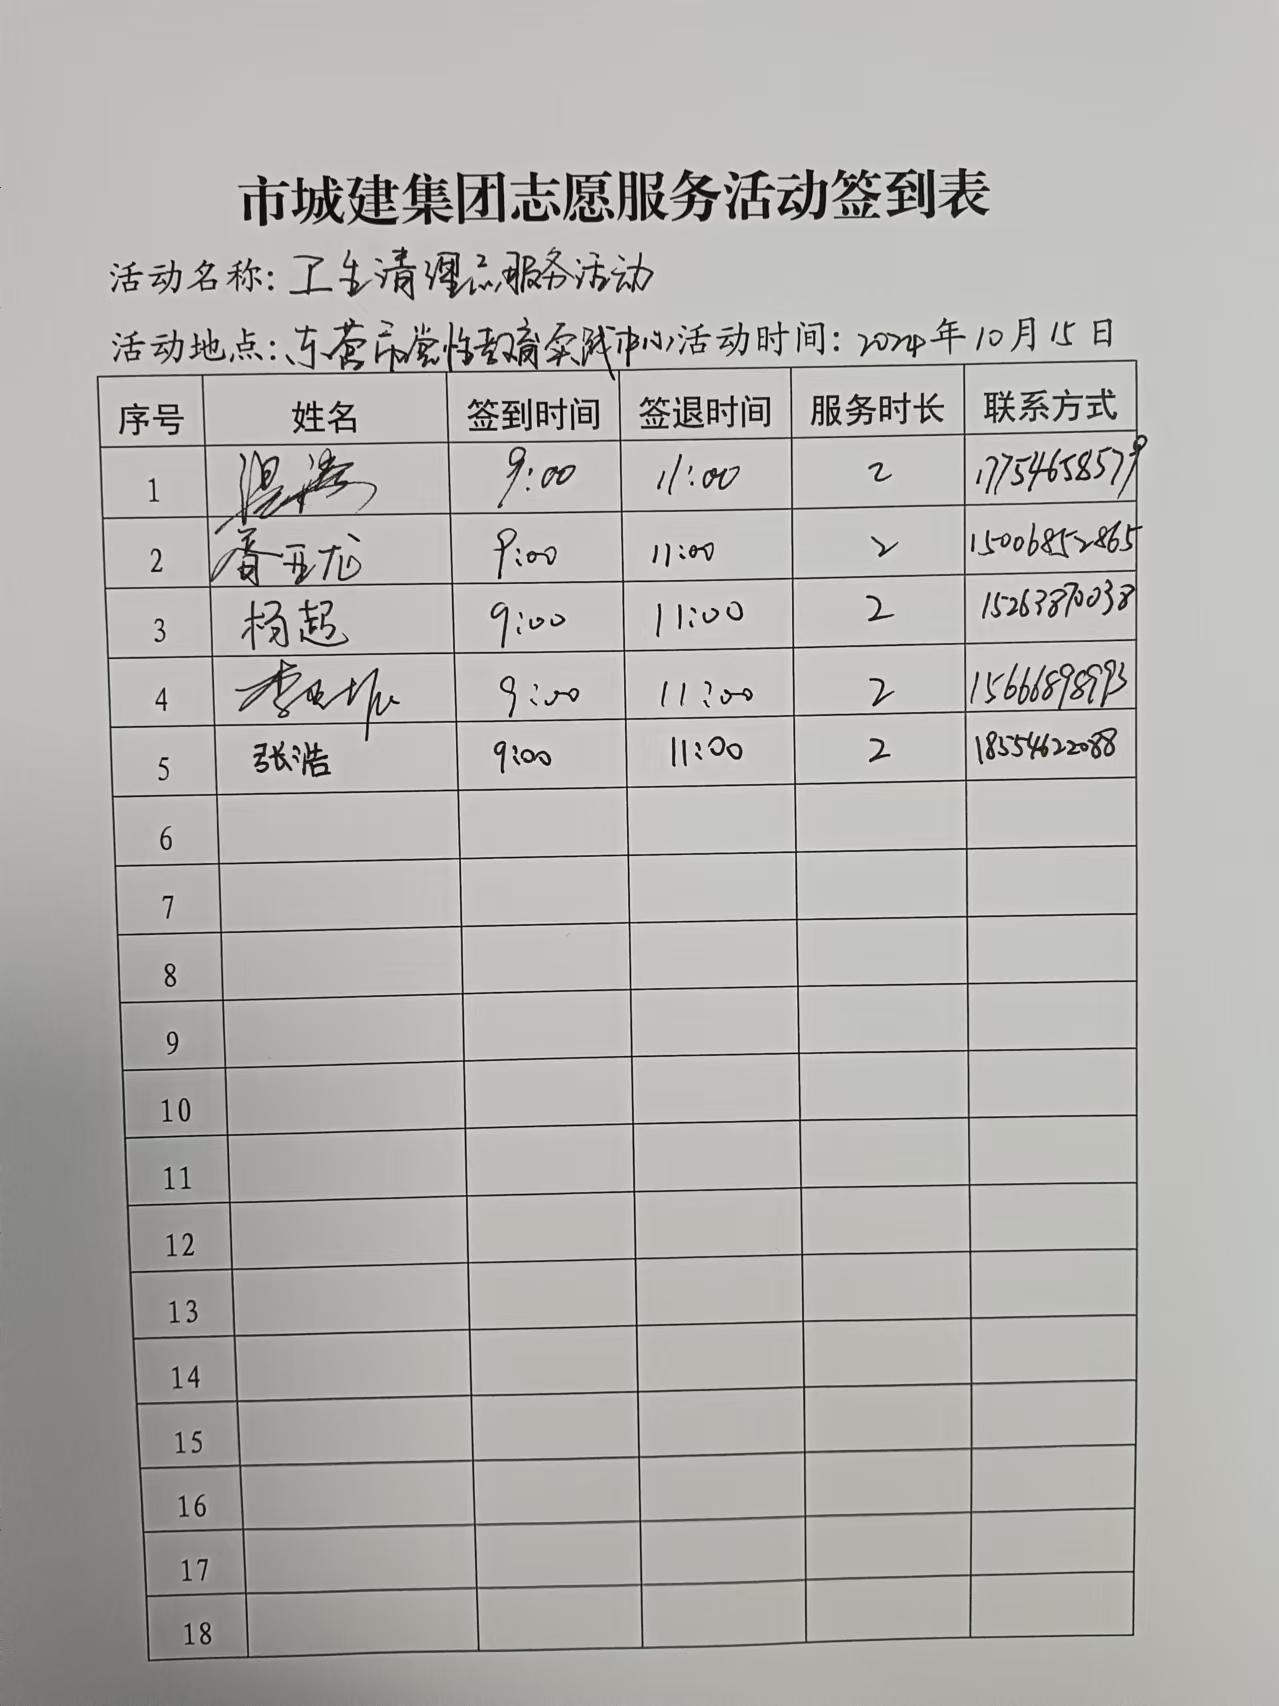 市城建集团志愿服务活动签到表
活动名称: 卫生清理志愿服务活动
活动地点: 东营市党性教育实践中心 活动时间: 2024年10月15日
序号 姓名 签到时间 签退时间 服务时长 联系方式
1 9:00 11:00 2 17754658579
2 9:00 11:00 2 15006852865
3 杨超 9:00 11:00 2 15263870038
4 李 9:00 11:00 2 15666898993
5 张浩 9:00 11:00 2 18554622088
6
7
8
9
10
11
12
13
14
15
16
17
18